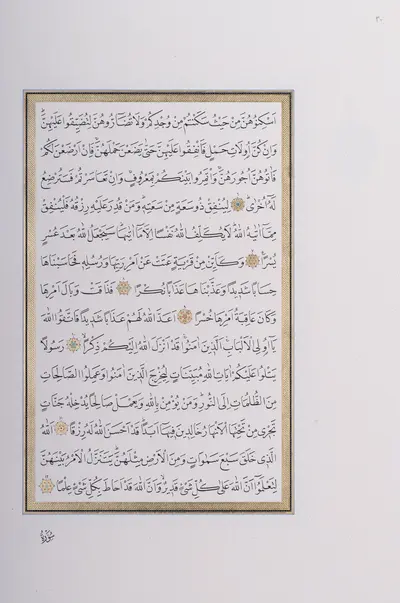 اَسْكِنُوهُنَّ مِنْ حَيْثُ سَكَنْتُمْ مِنْ وُجْدِكُمْ وَلَا تُضَٓارُّوهُنَّ لِتُضَيِّقُوا عَلَيْهِنَّ
وَاِنْ كُنَّ اُولَاتِ حَمْلٍ فَاَنْفِقُوا عَلَيْهِنَّ حَتّٰى يَضَعْنَ حَمْلَهُنَّ فَاِنْ اَرْضَعْنَ لَكُمْ
فَاٰتُوهُنَّ اُجُورَهُنَّ وَأْتَمِرُوا بَيْنَكُمْ بِمَعْرُوفٍ وَاِنْ تَعَاسَرْتُمْ فَسَتُرْضِعُ
لَهُٓ اُخْرٰى لِيُنْفِقْ ذُو سَعَةٍ مِنْ سَعَتِهِ وَمَنْ قُدِرَ عَلَيْهِ رِزْقُهُ فَلْيُنْفِقْ
مِمَّٓا اٰتٰيهُ اللّٰهُ لَا يُكَلِّفُ اللّٰهُ نَفْسًا اِلَّا مَٓا اٰتٰيهَا سَيَجْعَلُ اللّٰهُ بَعْدَ عُسْرٍ
يُسْرًا وَكَاَيِّنْ مِنْ قَرْيَةٍ عَتَتْ عَنْ اَمْرِ رَبِّهَا وَرُسُلِهِ فَحَاسَبْنَاهَا
حِسَابًا شَدِيدًا وَعَذَّبْنَاهَا عَذَابًا نُكْرًا فَذَاقَتْ وَبَالَ اَمْرِهَا
وَكَانَ عَاقِبَةُ اَمْرِهَا خُسْرًا اَعَدَّ اللّٰهُ لَهُمْ عَذَابًا شَدِيدًا فَاتَّقُوا اللّٰهَ
يَٓا اُولِي الْاَلْبَابِ الَّذِينَ اٰمَنُوا قَدْ اَنْزَلَ اللّٰهُ اِلَيْكُمْ ذِكْرًا رَسُولًا
يَتْلُوا عَلَيْكُمْ اٰيَاتِ اللّٰهِ مُبَيِّنَاتٍ لِيُخْرِجَ الَّذِينَ اٰمَنُوا وَعَمِلُوا الصَّالِحَاتِ
مِنَ الظُّلُمَاتِ اِلَى النُّورِ وَمَنْ يُؤْمِنْ بِاللّٰهِ وَيَعْمَلْ صَالِحًا يُدْخِلْهُ جَنَّاتٍ
تَجْرِي مِنْ تَحْتِهَا الْاَنْهَارُ خَالِدِينَ فِيهَٓا اَبَدًا قَدْ اَحْسَنَ اللّٰهُ لَهُ رِزْقًا اَللّٰهُ
الَّذِي خَلَقَ سَبْعَ سَمٰوَاتٍ وَمِنَ الْاَرْضِ مِثْلَهُنَّ يَتَنَزَّلُ الْاَمْرُ بَيْنَهُنَّ
لِتَعْلَمُٓوا اَنَّ اللّٰهَ عَلٰى كُلِّ شَيْءٍ قَدِيرٌ وَاَنَّ اللّٰهَ قَدْ اَحَاطَ بِكُلِّ شَيْءٍ عِلْمًا
سُورَةُ